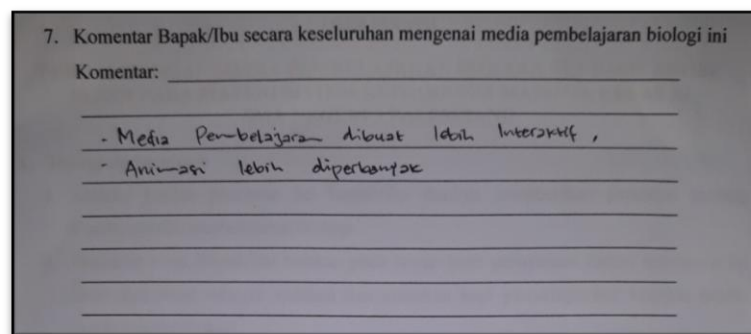 7. Komentar Bapak/Ibu secara keseluruhan mengenai media pembelajaran biologi ini
Komentar:
- Media Pembelajaran dibuat lebih Interaktif,
- Animasi lebih diperbanyak